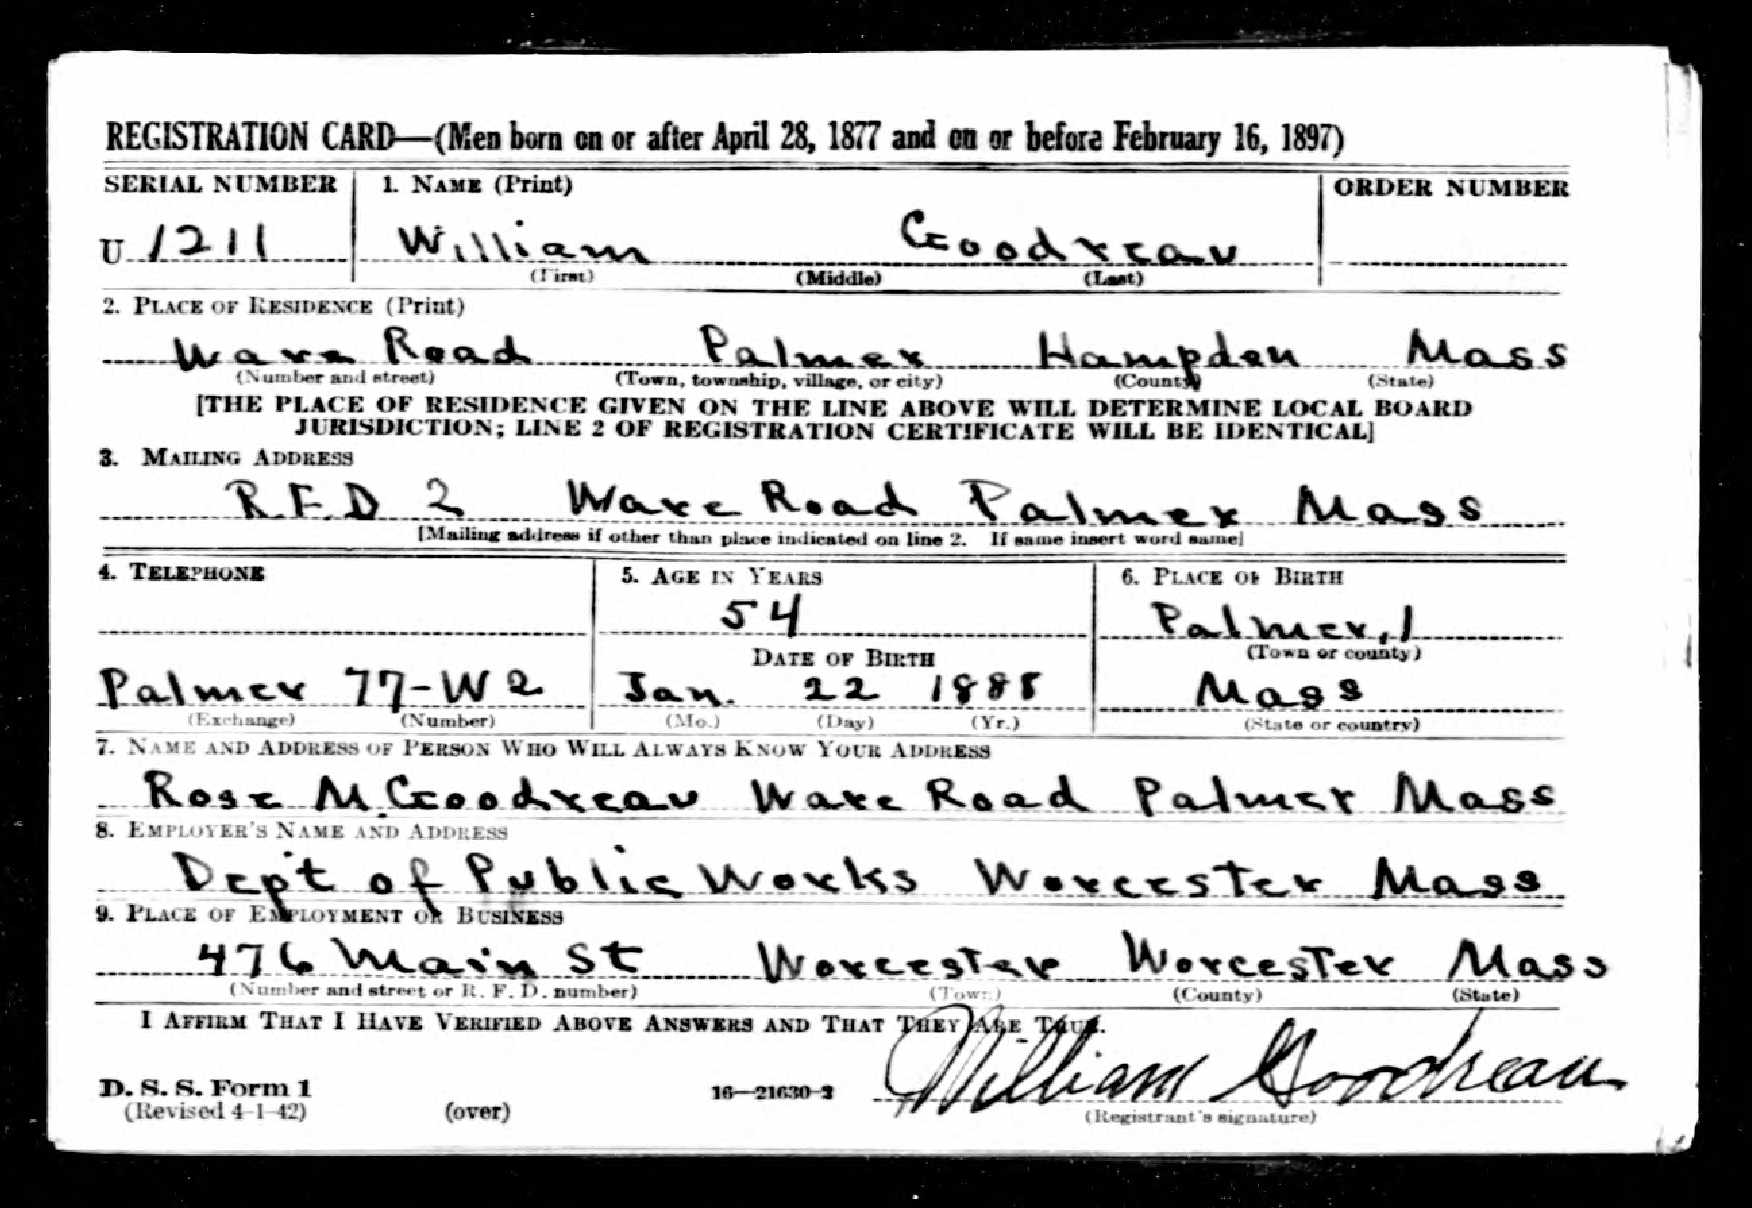 REGISTRATION CARD—(Men born on or after April 28, 1877 and on or before February 16, 1897)
SERIAL NUMBER 1. NAME (Print) ORDER NUMBER
U 1211 William Goodreau
(First) (Middle) (Last)
2. PLACE OF RESIDENCE (Print)
Ware Road Palmer Hampden Mass
(Number and street) (Town, township, village, or city) (County) (State)
[THE PLACE OF RESIDENCE GIVEN ON THE LINE ABOVE WILL DETERMINE LOCAL BOARD
JURISDICTION; LINE 2 OF REGISTRATION CERTIFICATE WILL BE IDENTICAL]
3. MAILING ADDRESS
R.F.D 2 Ware Road Palmer Mass
[Mailing address if other than place indicated on line 2. If same insert word same]
4. TELEPHONE 5. AGE IN YEARS 6. PLACE OF BIRTH
54 Palmer,
DATE OF BIRTH (Town or county)
Palmer 77-W2 Jan. 22 1888 Mass
(Exchange) (Number) (Mo.) (Day) (Yr.) (State or country)
7. NAME AND ADDRESS OF PERSON WHO WILL ALWAYS KNOW YOUR ADDRESS
Rose M. Goodreau Ware Road Palmer Mass
8. EMPLOYER'S NAME AND ADDRESS
Dep't of Public Works Worcester Mass
9. PLACE OF EMPLOYMENT OR BUSINESS
476 Main St Worcester Worcester Mass
(Number and street or R. F. D. number) (Town) (County) (State)
I AFFIRM THAT I HAVE VERIFIED ABOVE ANSWERS AND THAT THEY ARE TRUE.
William Goodreau
D. S. S. Form 1 16—21630-2
(Revised 4-1-42) (over) (Registrant's signature)